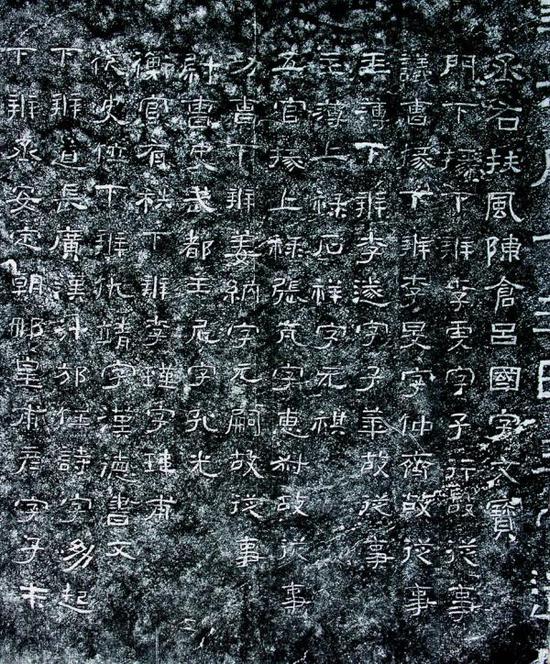 丞右扶風陳倉呂國字文寶
門下掾下辨李虔字子行故從事
議曹掾下辨李旻字仲齊故從事
主簿下辨李遂字子華故從事
主簿上祿石祥字元祺
五官掾上祿張亢字惠叔故從事
功曹下辨姜納字元嗣故從事
尉曹史武都王尼字孔光
衡官有秩下辨李瑾字瑋甫
從史位下辨仇靖字漢德書文
下辨道長廣漢汁邡任詩字幼起
下辨丞安定朝那皇甫彥字子才